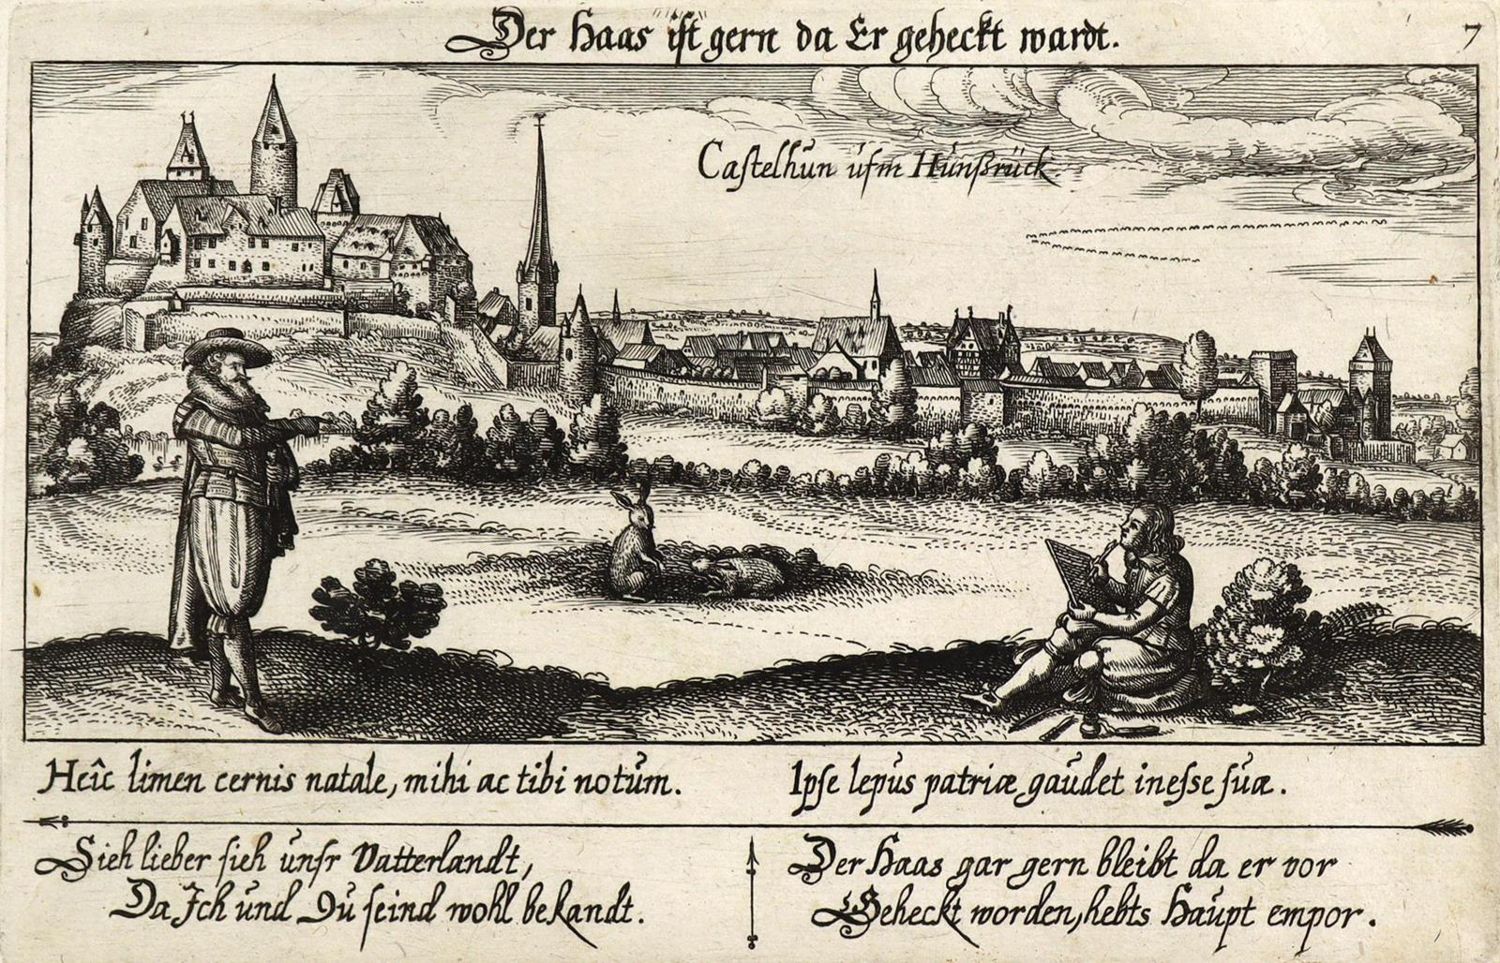 Der Haas ist gern da Er geheckt wardt.
7
Castelhun ufm Hunßrück
Heîc limen cernis natale, mihi ac tibi notum.
Ipse lepus patriæ gaudet inesse suæ.
Sieh lieber sieh unsr Vatterlandt,
Da Ich und Du seind wohl bekandt.
Der Haas gar gern bleibt da er vor
Geheckt worden, hebts Haupt empor.